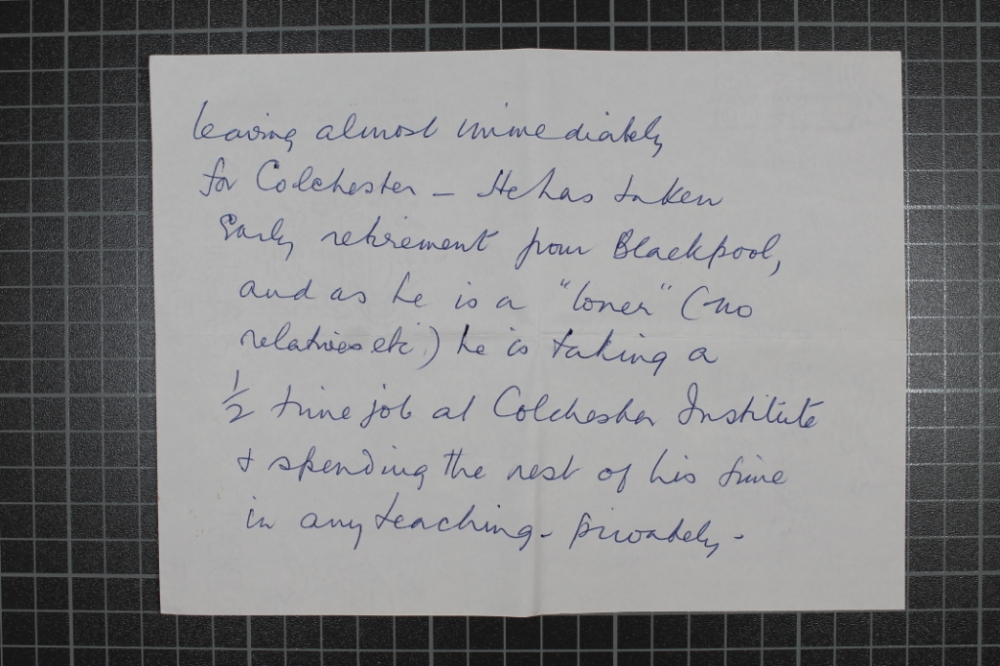 leaving almost immediately
for Colchester – He has taken
Early retirement from Blackpool,
and as he is a "loner" (no
relatives etc.) he is taking a
½ time job at Colchester Institute
+ spending the rest of his time
in any teaching - privately -